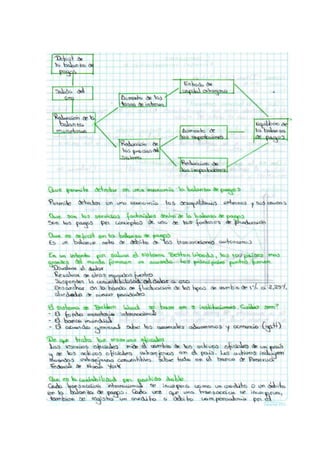 Déficit de
la balanza de
pagos
Salida del
oro
Reducción de la
balanza
monetaria
Aumento de las
tasas de interes
Reducción de
los precios del
Entrada de
capital extranjero
Aumento de
las exportaciones
Reducción de
las importaciones
Equilibrio de
la balanza
de pagos
Que permite detectar en una economia la balanza de pagos
Permite detectar en una economia los desequilibrios externos y sus causas
Que son los servicios factoriales dentro de la balanza de pagos
Son los pagos por conceptos de uso de los factores de producción
Que es deficit en la balanza de pagos
Es un balance neto de debito de las transacciones autonomas
En un intento por salvar el sistema Bretton Woods, los paises mas
grandes del mundo firmaron un acuerdo. Los principales puntos fueron:
Devaluar el dolar
Revaluar otras monedas fuertes
Suspender la convertibilidad del dolar a oro
Ensanchar la banda de fluctuación de los tipos de cambio de 1% a 2,25%
El sistema de Bretton Wood se baso en 3 instituciones. Cuales son?
- El fondo monetario internacional
- El banco mundial
- El acuerdo general sobre los aranceles aduaneros y comercio (gatt)
De que trata las reservas oficiales
Las reservas oficiales mide el cambio de los activos oficiales de un país
y de los activos oficiales extranjeros en el país. Los activos incluyen
monedas extranjeras convertibles sobre todo en el banco de Reserva
Federal de Nueva York
Que es la contabilidad por partida doble
Cada transacción internacional se incorpora como un credito o un debito
en la balanza de pagos. Cada vez que una transacción se incorpora,
tambien se registra un credito o debito compensatorio por el